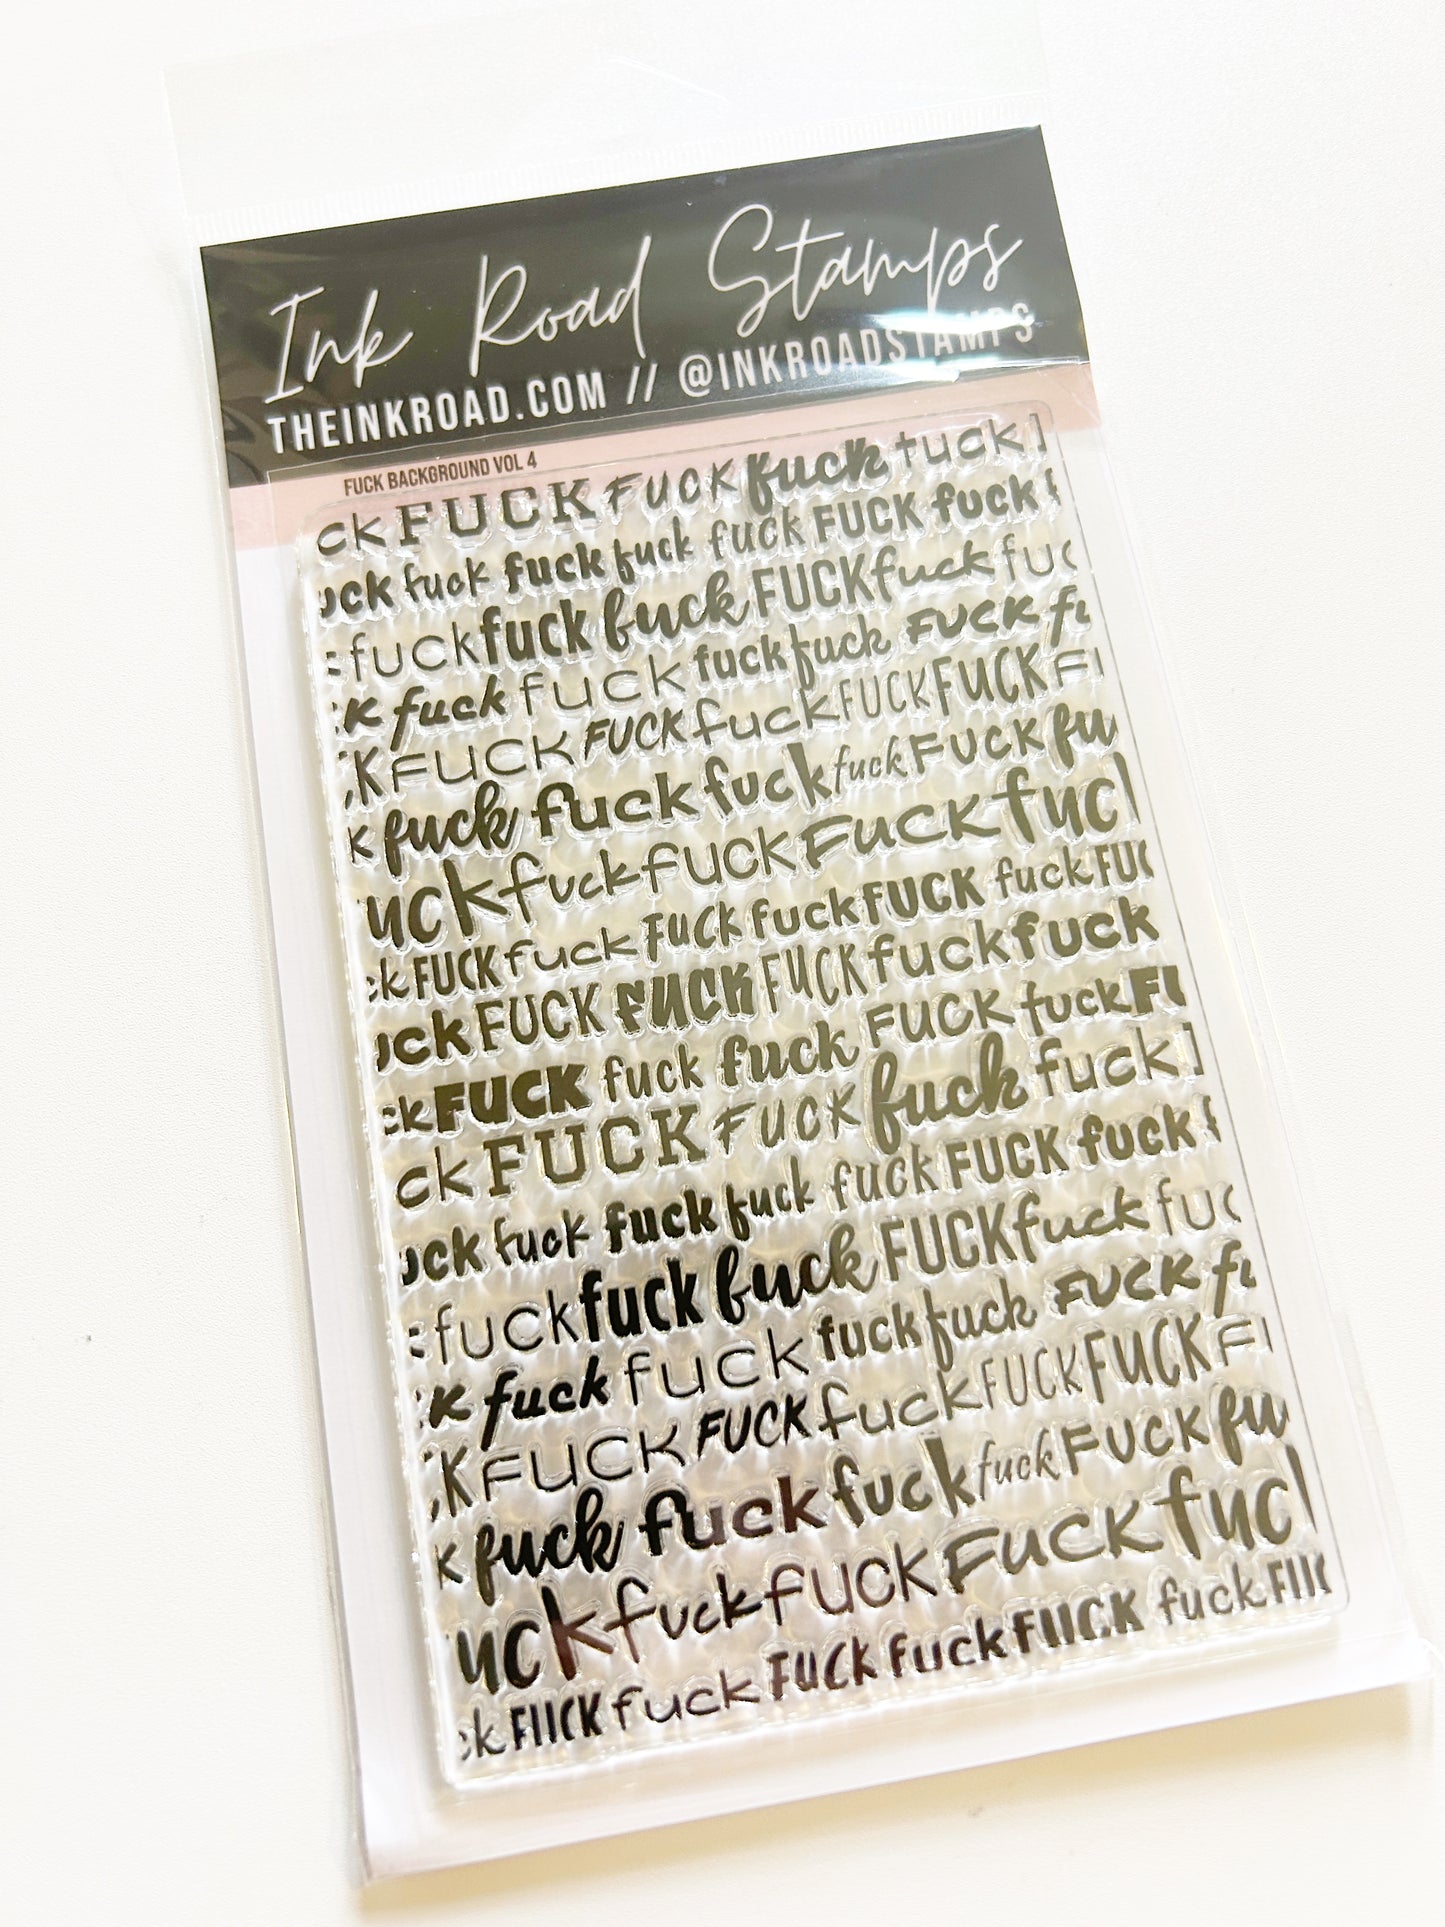 Ink Road Stamps
THEINKROAD.COM // @INKROADSTAMPS
FUCK BACKGROUND VOL 4
ck FUCK FUCK fuck fuck
uck fuck fuck fuck fuck FUCK fuck
fuck fuck fuck FUCK fuck fuc
k fuck fuck fuck fuck FUCK fu
K FUCK FUCK fuck FUCK FUCK F
k fuck fuck fuck fuck FUCK fu
uck fuck fuck FUCK fuc
ck FUCK fuck FUCK fuck FUCK fuck FUC
uck FUCK FUCK FUCK fuck fuck
ck FUCK fuck fuck FUCK fuck FU
ck FUCK FUCK fuck fuck
uck fuck fuck fuck fuck FUCK fuck
fuck fuck fuck FUCK fuck fuc
k fuck fuck fuck fuck FUCK fu
K FUCK FUCK fuck FUCK FUCK F
k fuck fuck fuck fuck FUCK fu
uck fuck fuck FUCK fuc
ck FUCK fuck FUCK fuck FUCK fuck FUC